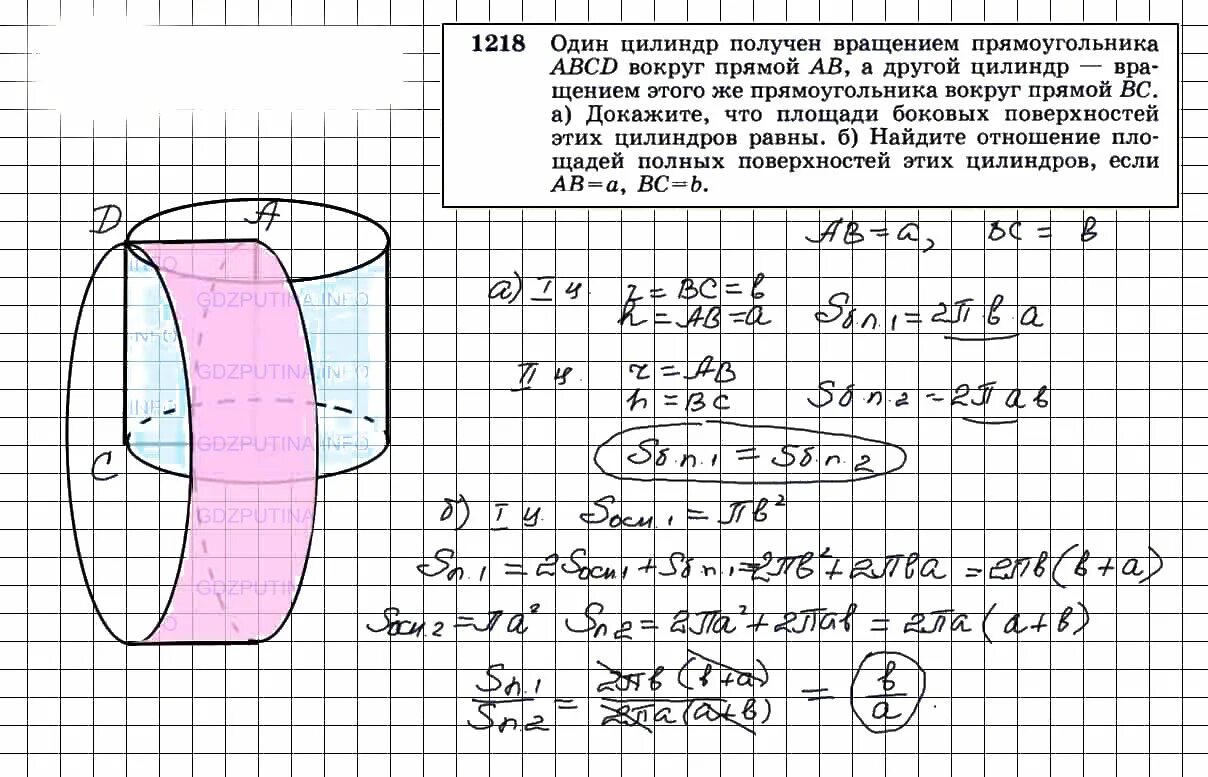 1218 Один цилиндр получен вращением прямоугольника
ABCD вокруг прямой AB, а другой цилиндр — вра-
щением этого же прямоугольника вокруг прямой BC.
а) Докажите, что площади боковых поверхностей
этих цилиндров равны. б) Найдите отношение пло-
щадей полных поверхностей этих цилиндров, если
AB=a, BC=b.
AB = a, BC = в
D A
INFO
GDZPUTINA.INFO
INFO
GDZPUTINA.INFO
INFO
GDZPUTINA.INFO
C
GDZPUTINA
GDZPUTINA
а) I ц. r = BC = в
h = AB = a Sб.п.1 = 2π в a
II ц. r = AB
h = BC Sб.п.2 = 2π a в
Sб.п.1 = Sб.п.2
б) I ц. Sосн.1 = πв²
Sп.1 = 2Sосн1 + Sб.п.1 = 2πв² + 2πвa = 2πв(в+a)
Sосн.2 = πa² Sп2 = 2πa² + 2πaв = 2πa(a+в)
Sп.1 / Sп.2 = 2πв(в+a) / 2πa(a+в) = в / a.